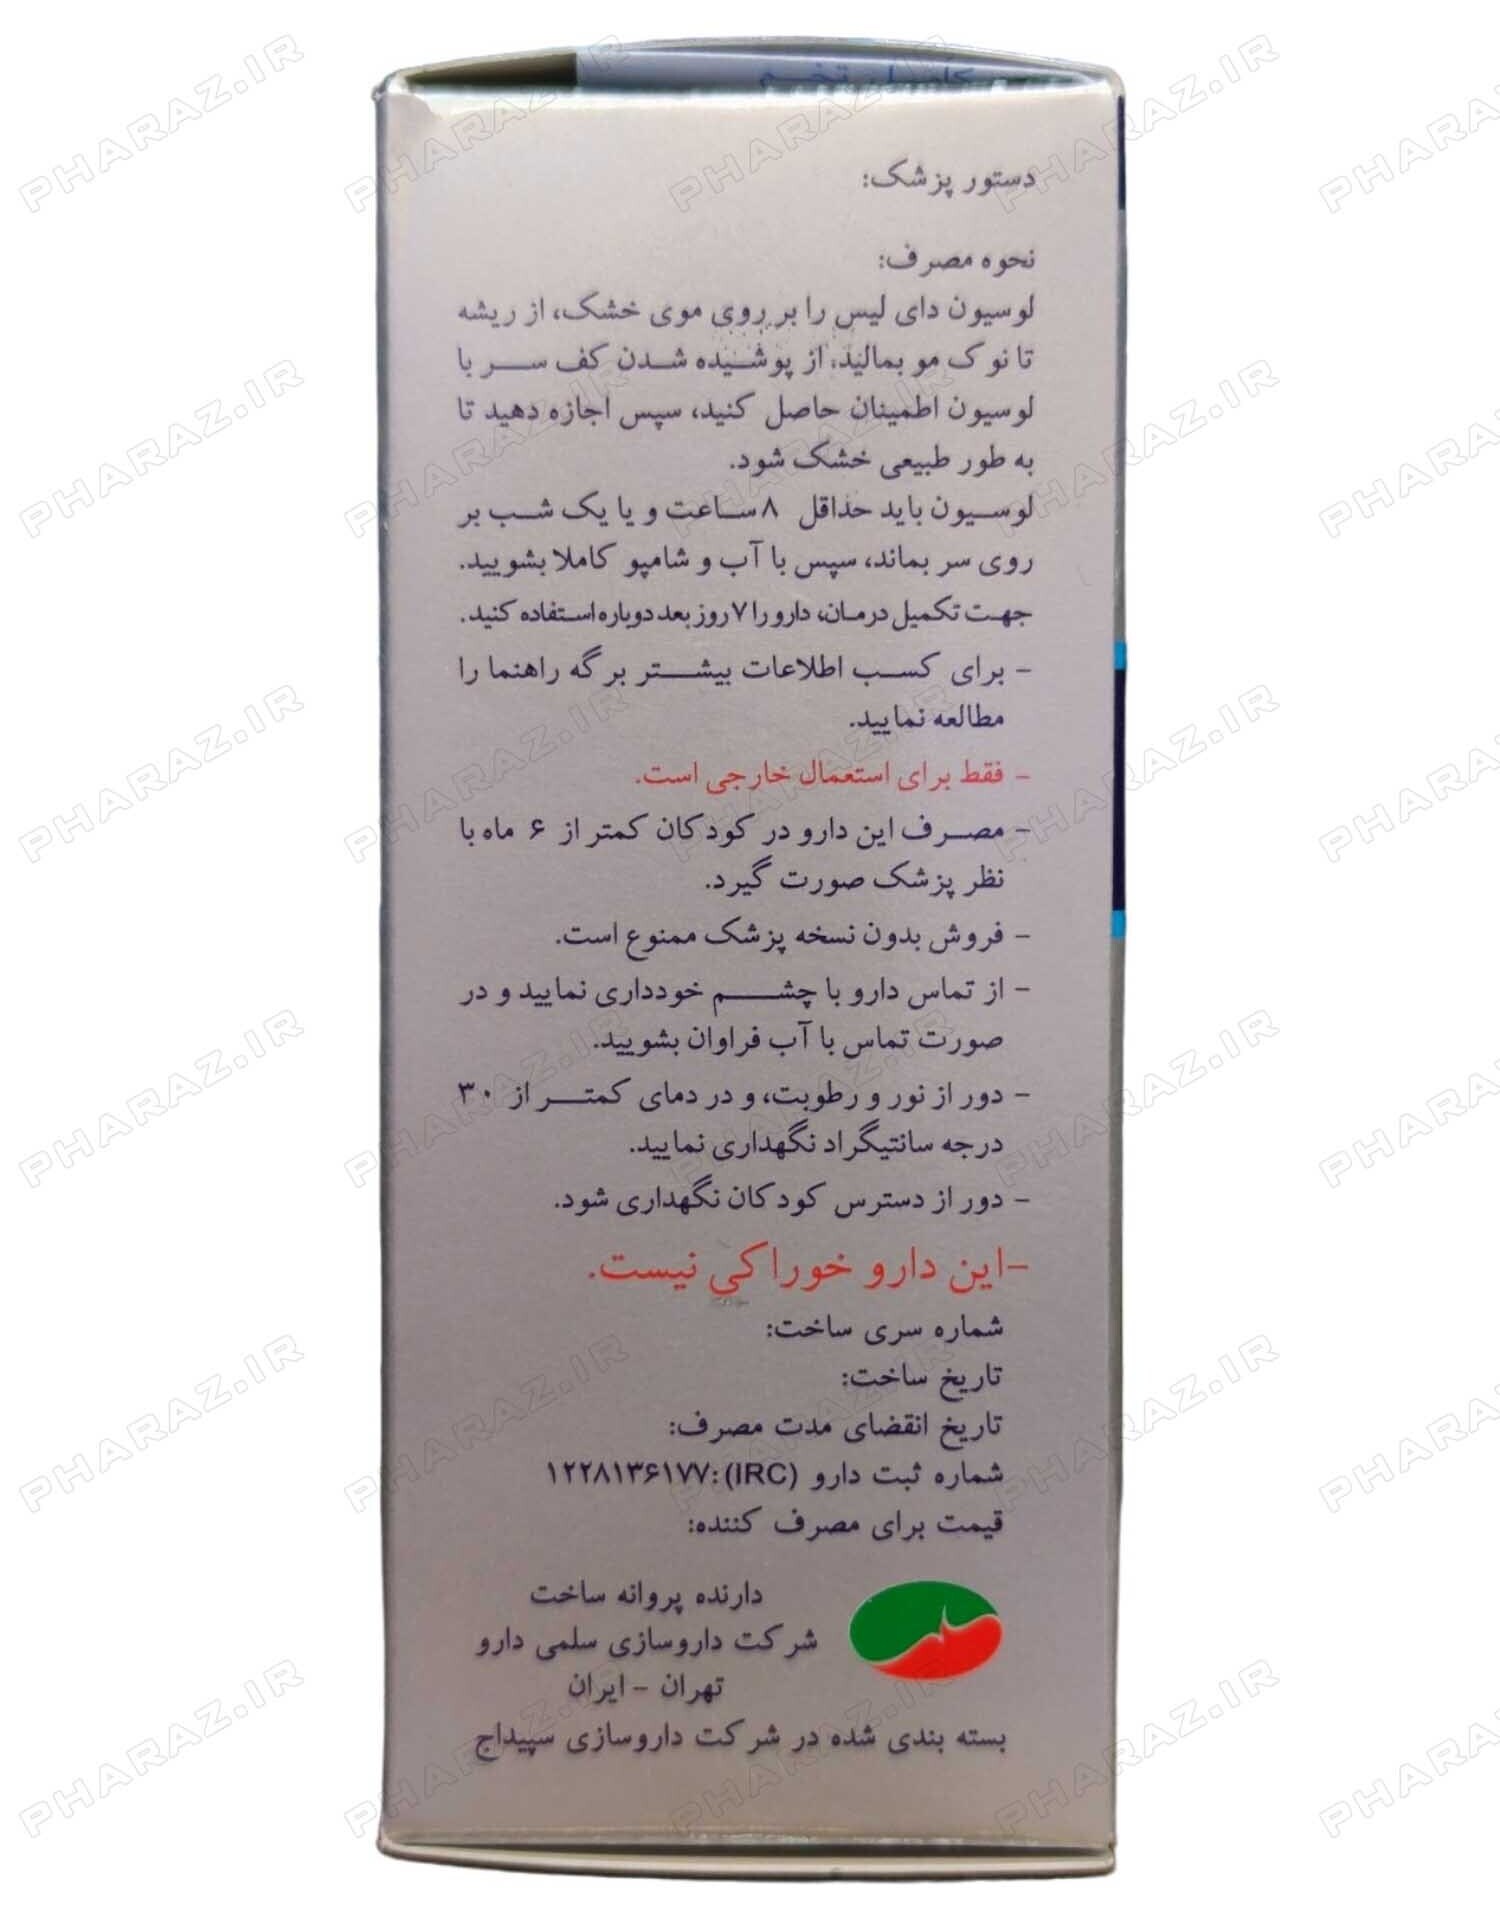 کامل تخم
دستور پزشک:
نحوه مصرف:
لوسیون دای لیس را بر روی موی خشک، از ریشه
تا نوک مو بمالید، از پوشیده شدن کف سر با
لوسیون اطمینان حاصل کنید، سپس اجازه دهید تا
به طور طبیعی خشک شود.
لوسیون باید حداقل ۸ ساعت و یا یک شب بر
روی سر بماند، سپس با آب و شامپو کاملا بشویید.
جهت تکمیل درمان، دارو را ۷ روز بعد دوباره استفاده کنید.
- برای کسب اطلاعات بیشتر برگه راهنما را
مطالعه نمایید.
- فقط برای استعمال خارجی است.
- مصرف این دارو در کودکان کمتر از ۶ ماه با
نظر پزشک صورت گیرد.
- فروش بدون نسخه پزشک ممنوع است.
- از تماس دارو با چشم خودداری نمایید و در
صورت تماس با آب فراوان بشویید.
- دور از نور و رطوبت، و در دمای کمتر از ۳۰
درجه سانتیگراد نگهداری نمایید.
- دور از دسترس کودکان نگهداری شود.
-این دارو خوراکی نیست.
شماره سری ساخت:
تاریخ ساخت:
تاریخ انقضای مدت مصرف:
شماره ثبت دارو (IRC):۱۲۲۸۱۳۶۱۷۷
قیمت برای مصرف کننده:
دارنده پروانه ساخت
شرکت داروسازی سلمی دارو
تهران - ایران
بسته بندی شده در شرکت داروسازی سپیداج
PHARAZ.IR